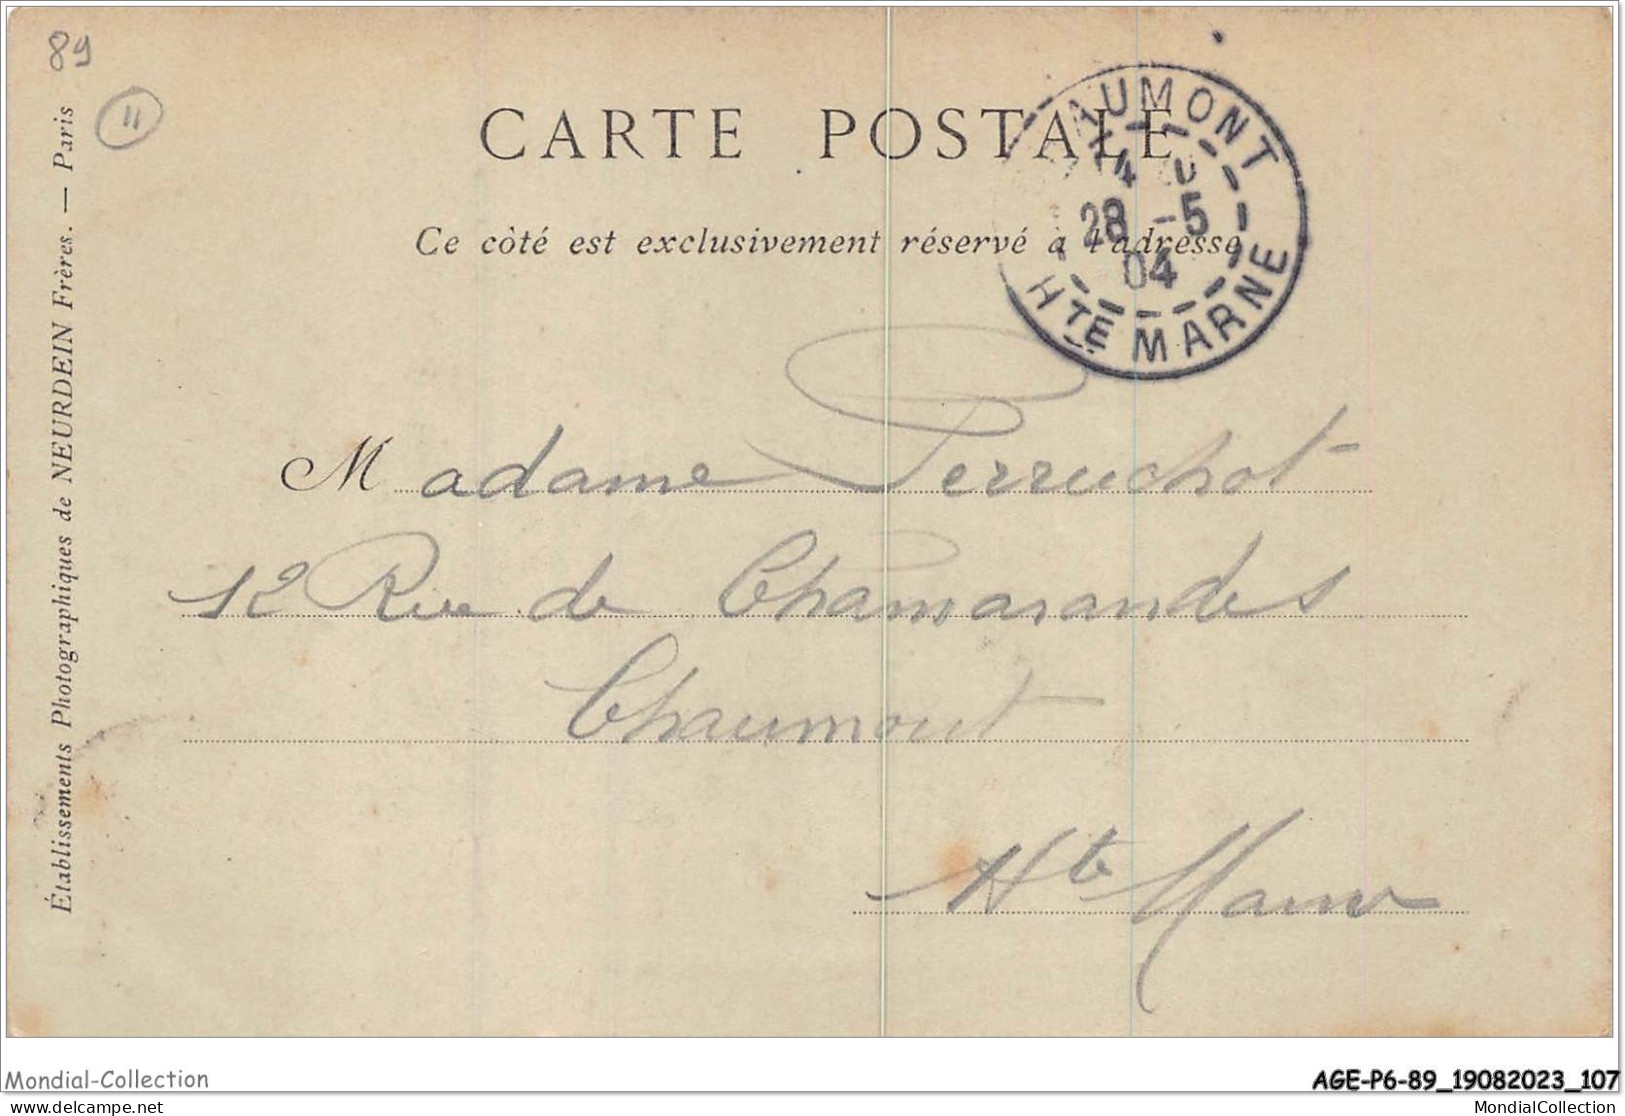 89
11
CARTE POSTALE
Ce côté est exclusivement réservé à l'adresse
AUMONT
28 -5
04
HTE MARNE
Madame Perruchot
12 Rue de Chamarandes
Chaumont
Hte Marne
Établissements Photographiques de NEURDEIN Frères. — Paris
Mondial-Collection
AGE-P6-89_19082023_107
delcampe.net
MondialCollection